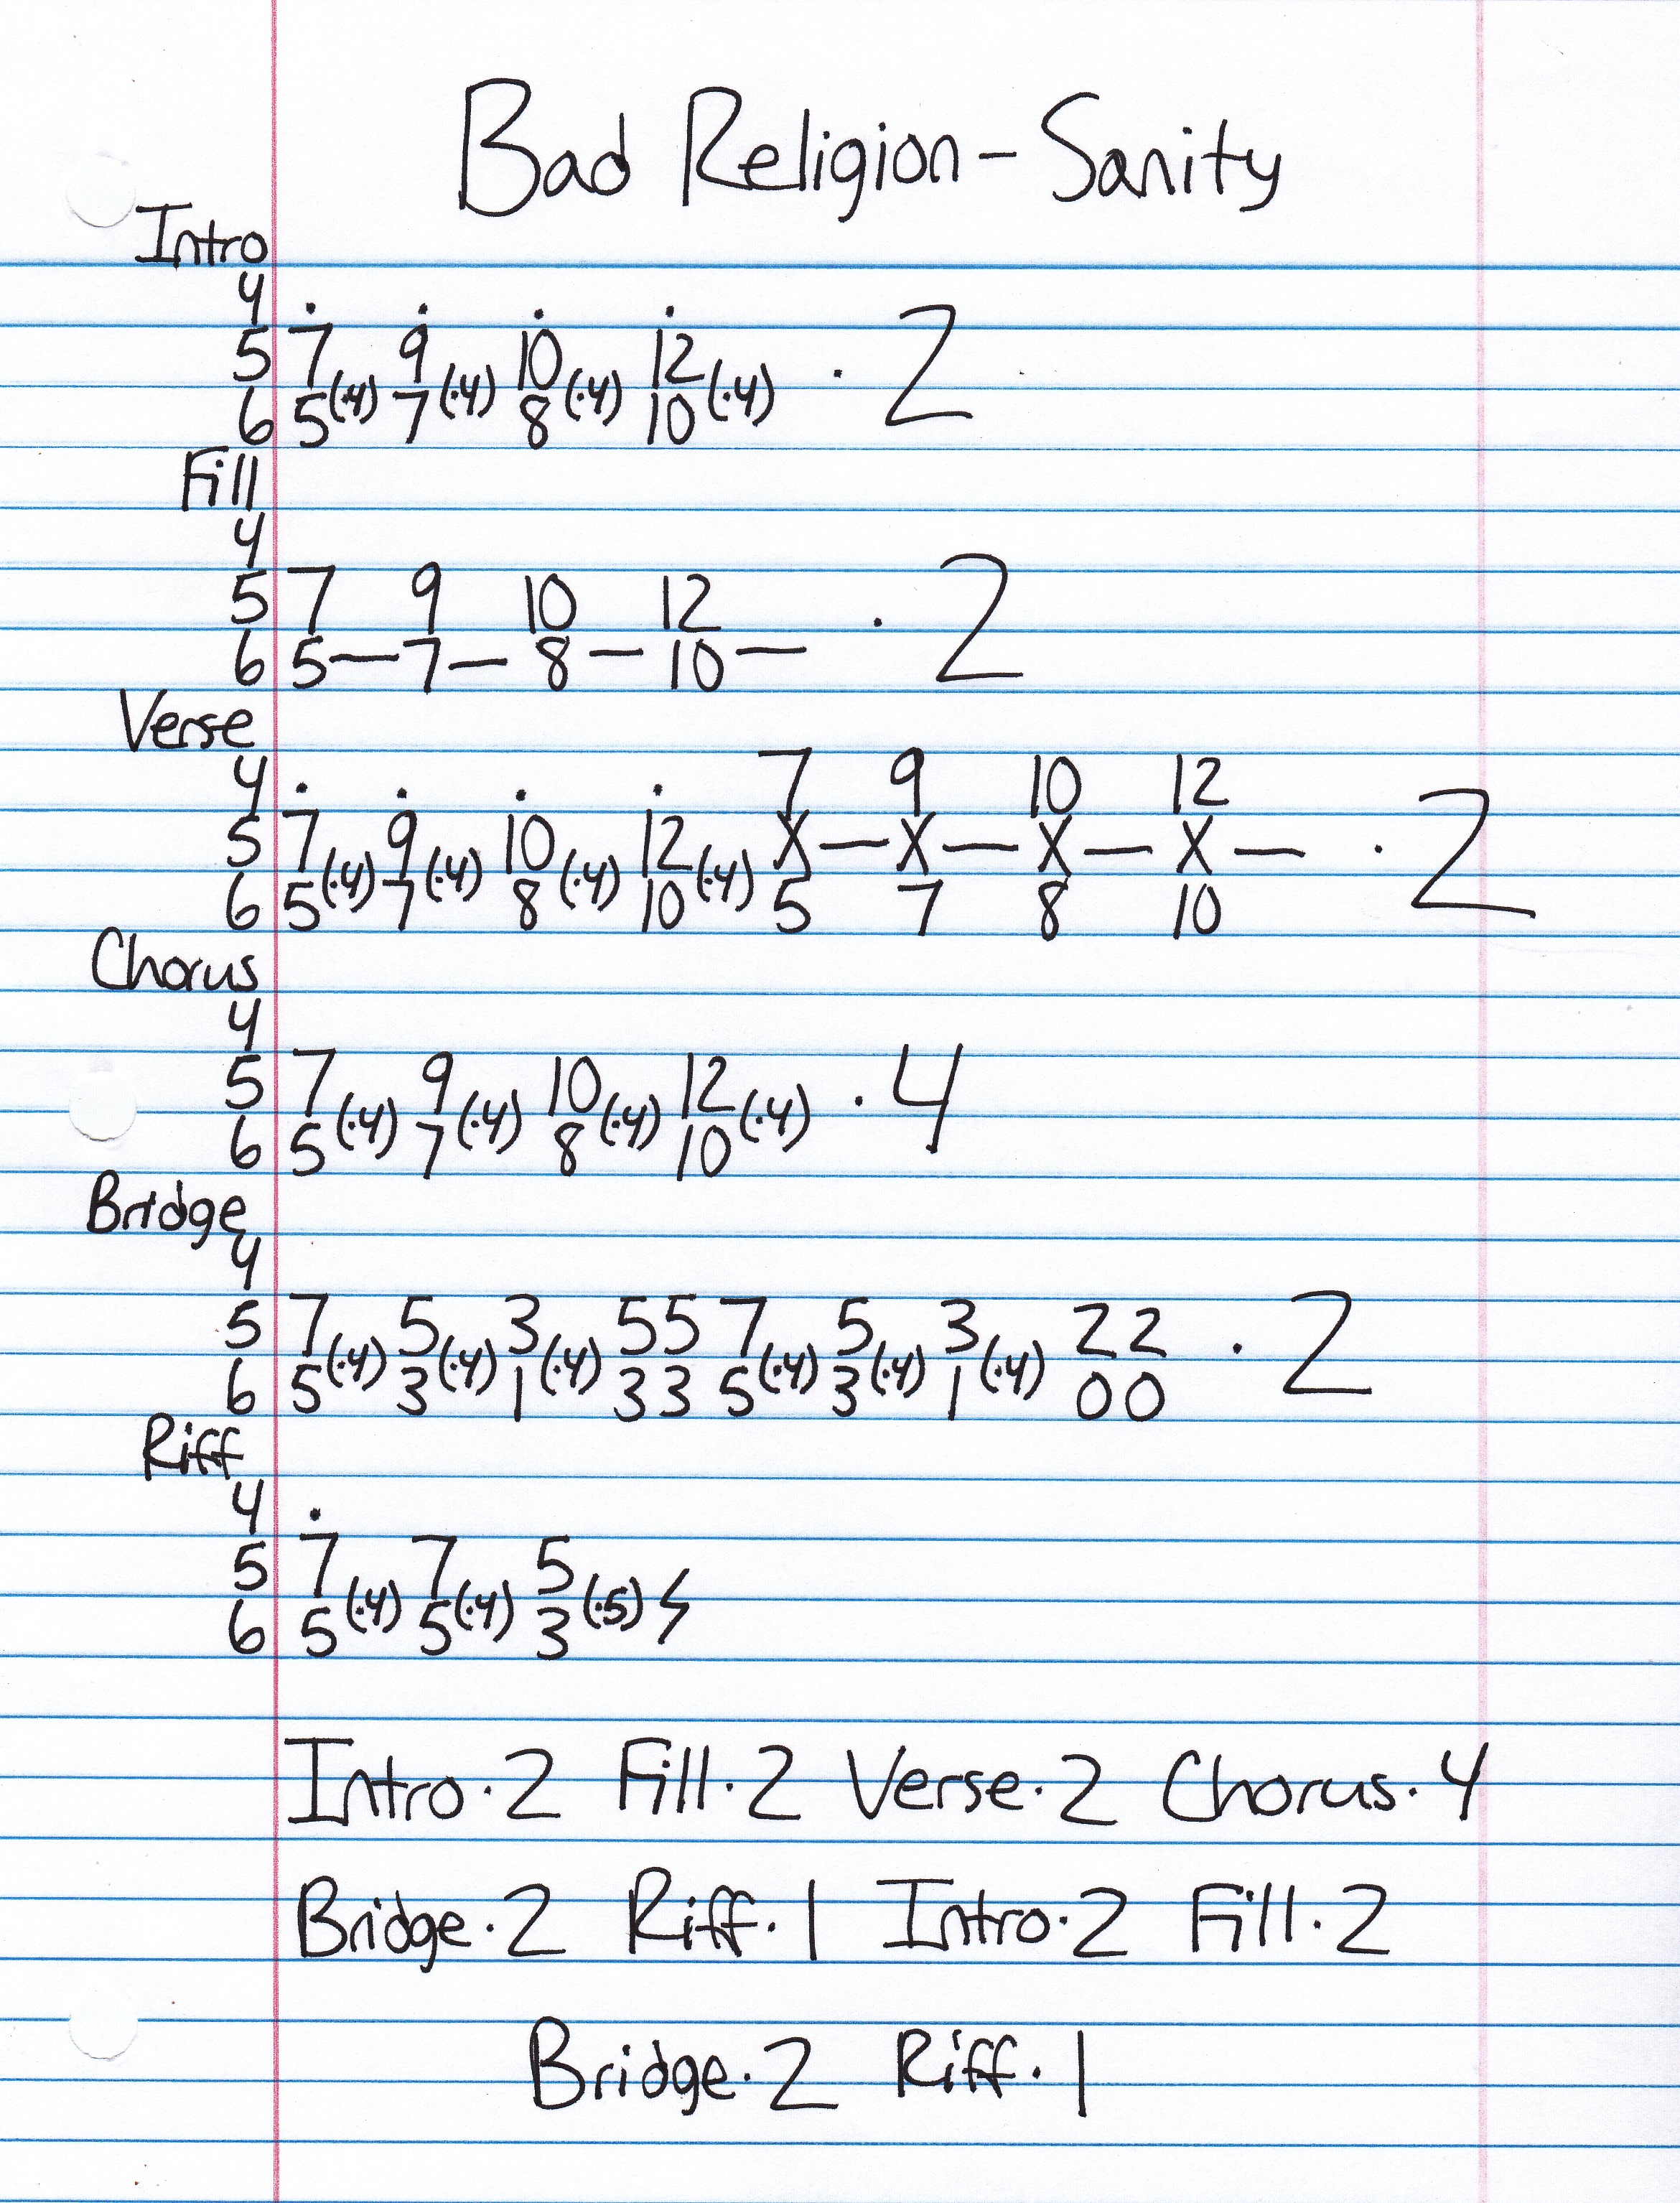 Bad Religion - Sanity
Intro
4 . . . .
5 7 9 10 12
6 5(·4) 7(·4) 8(·4) 10(·4) · 2
Fill
4
5 7 9 10 12
6 5— 7— 8— 10— · 2
Verse
4 . . . . 7 9 10 12
5 7 9 10 12 X— X— X— X— · 2
6 5(·4) 7(·4) 8(·4) 10(·4) 5 7 8 10
Chorus
4
5 7 9 10 12
6 5(·4) 7(·4) 8(·4) 10(·4) · 4
Bridge
4
5 7 5 3 55 7 5 3 22
6 5(·4) 3(·4) 1(·4) 33 5(·4) 3(·4) 1(·4) 00 · 2
Riff
4 .
5 7 7 5
6 5(·4) 5(·4) 3(·5) ϟ
Intro·2 Fill·2 Verse·2 Chorus·4
Bridge·2 Riff·1 Intro·2 Fill·2
Bridge·2 Riff·1